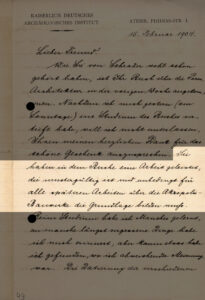 KAISERLICH DEUTSCHES
ARCHÄOLOGISCHES INSTITUT
ATHEN, PHIDIAS-STR. 1
16. Februar 1904.
Lieber Freund!
Wie Sie von Schrader wohl schon
gehört haben, ist Ihr Buch über die
Architektur in der vorigen Woche angekom-
men. Nachdem ich mich gestern (am
Sonntage) ins Studium des Buches
vertieft habe, will ich nicht unterlassen,
Ihnen meinen herzlichen Dank für das
schöne Geschenk auszusprechen. Sie
haben in dem Buch eine Arbeit geliefert,
die mustergiltig ist und unbedingt für
alle späteren Arbeiten über die Akropolis-
Bauwerke die Grundlage bilden muss.
Studium habe ich Manches gelernt,
an manche längst vergessene Dinge habe
ich mich erinnert, aber kaum etwas habe
ich gefunden, wo ich abweichende Meinung
war. Die Datierung der verschiedenen